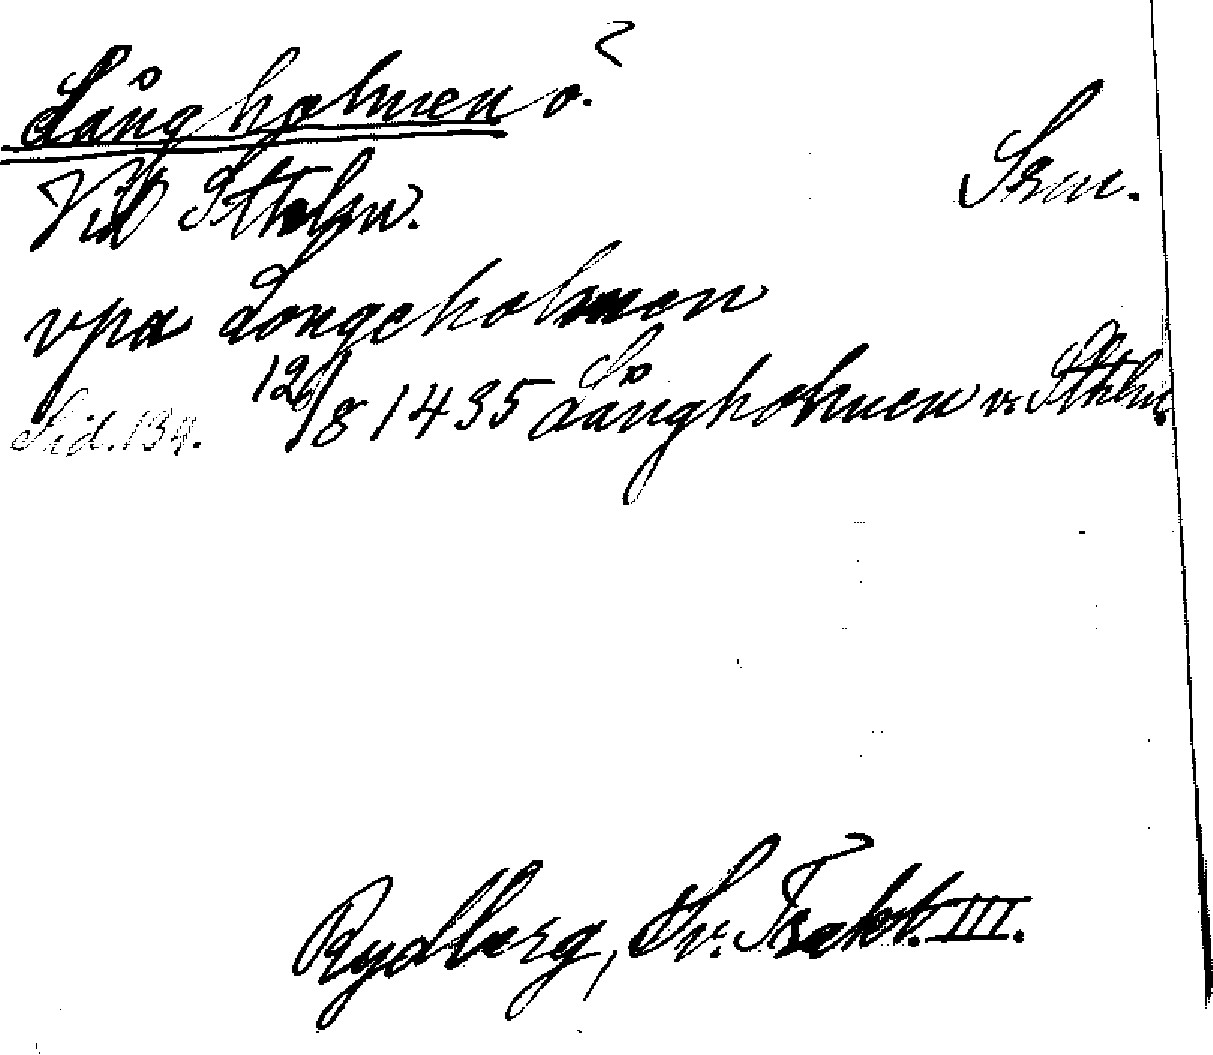 Långholmen ö. ?
Vid Sthlm. Srm.
vpa Longeholmen
Sid. 134. 126/8 1435 Långholmen v. Sthlm.
Rydberg, Sv. Trakt. III.